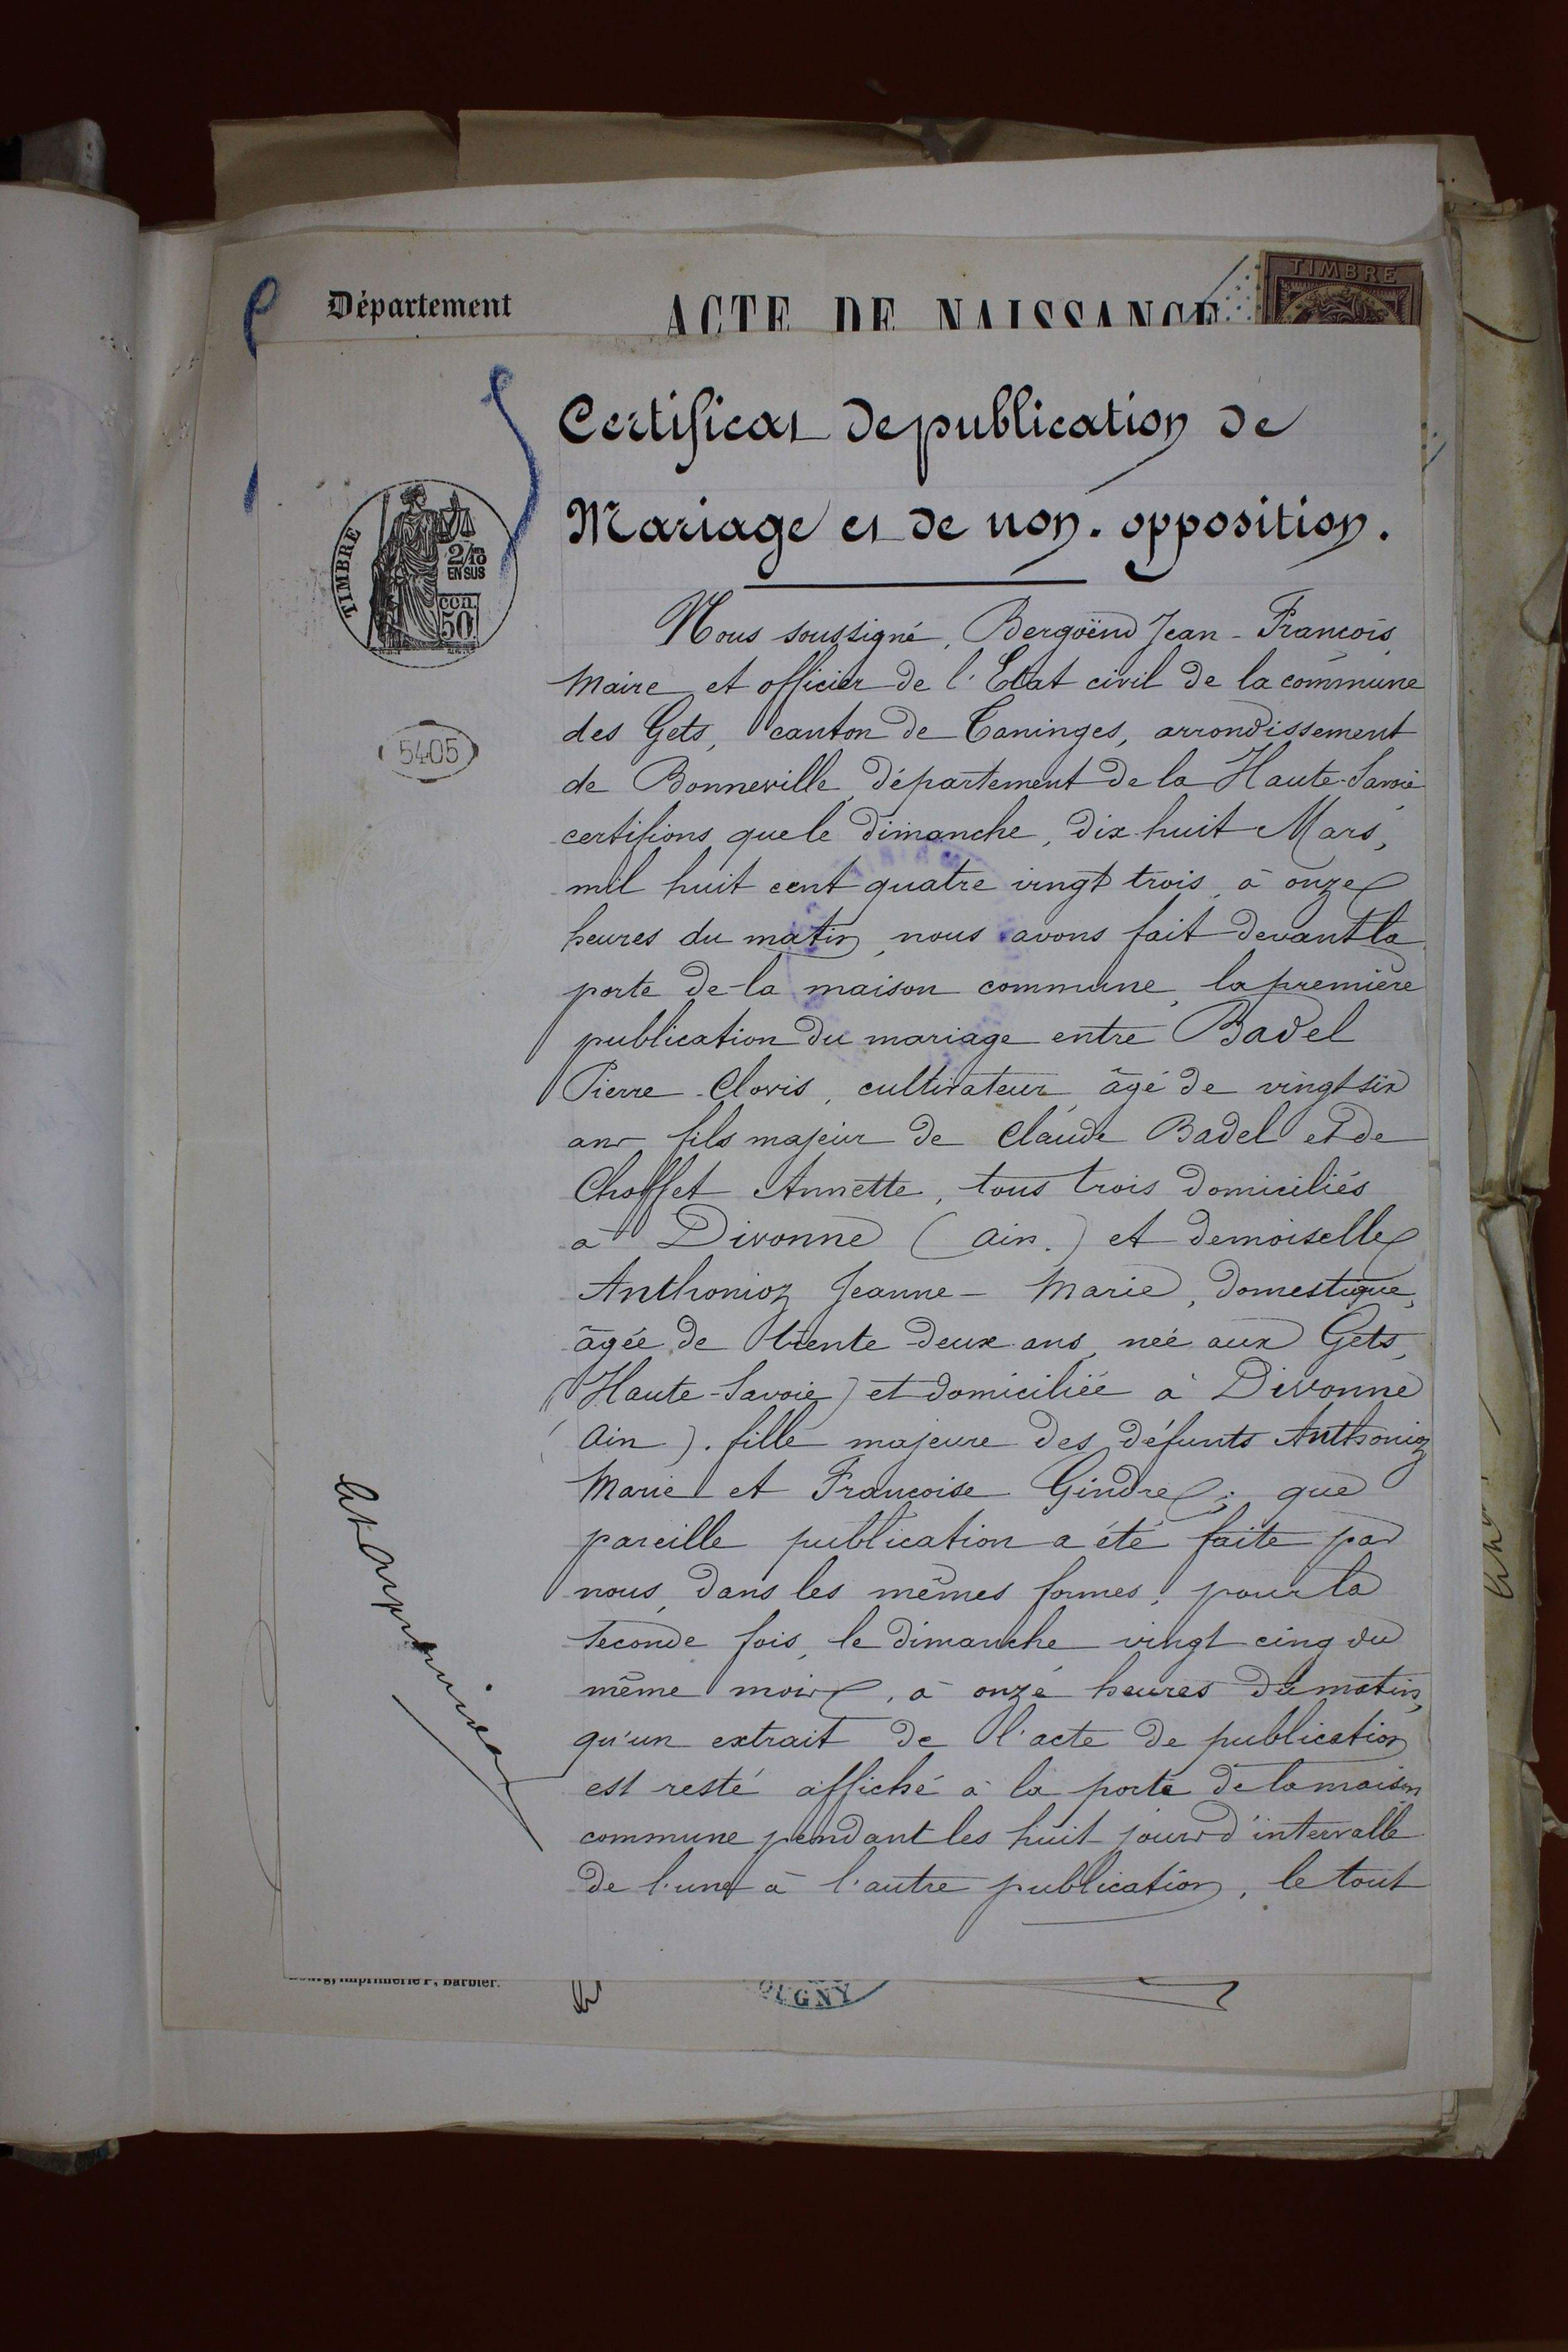 Département
ACTE DE NAISSANCE
TIMBRE
Certificat de publication de
Mariage et de non-opposition.
TIMBRE
2/10
EN SUS
50
5405
Nous soussigné, Bergoënd Jean-François,
Maire et officier de l'Etat civil de la commune
des Gets, canton de Taninges, arrondissement
de Bonneville, département de la Haute-Savoie
certifions que le dimanche, dix huit Mars,
mil huit cent quatre vingt trois, à onze
heures du matin, nous avons fait devant la
porte de la maison commune, la première
publication du mariage entre Badel
Pierre-Clovis, cultivateur, âgé de vingt six
ans fils majeur de Claude Badel et de
Choffet Annette, tous trois domiciliés
à Divonne (Ain.) et demoiselle
Anthonioz Jeanne-Marie, domestique,
âgée de trente-deux ans, née aux Gets,
(Haute-Savoie) et domiciliée à Divonne
(Ain). fille majeure des défunts Anthonioz
Marie et Françoise Gindre; que
pareille publication a été faite par
nous, dans les mêmes formes, pour la
seconde fois, le dimanche vingt cinq du
même mois, à onze heures du matin,
qu'un extrait de l'acte de publication
est resté affiché à la porte de la maison
commune pendant les huit jours d'intervalle
de l'une à l'autre publication, le tout
Imprimerie P. Barbier.
OUGNY